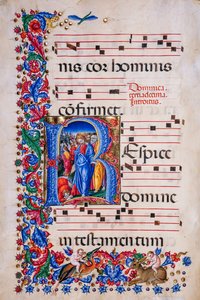 nis cor hominis
Dominica
tertiadecima
Introitus.
cõfirmet.
REspice
domine
in testamentum